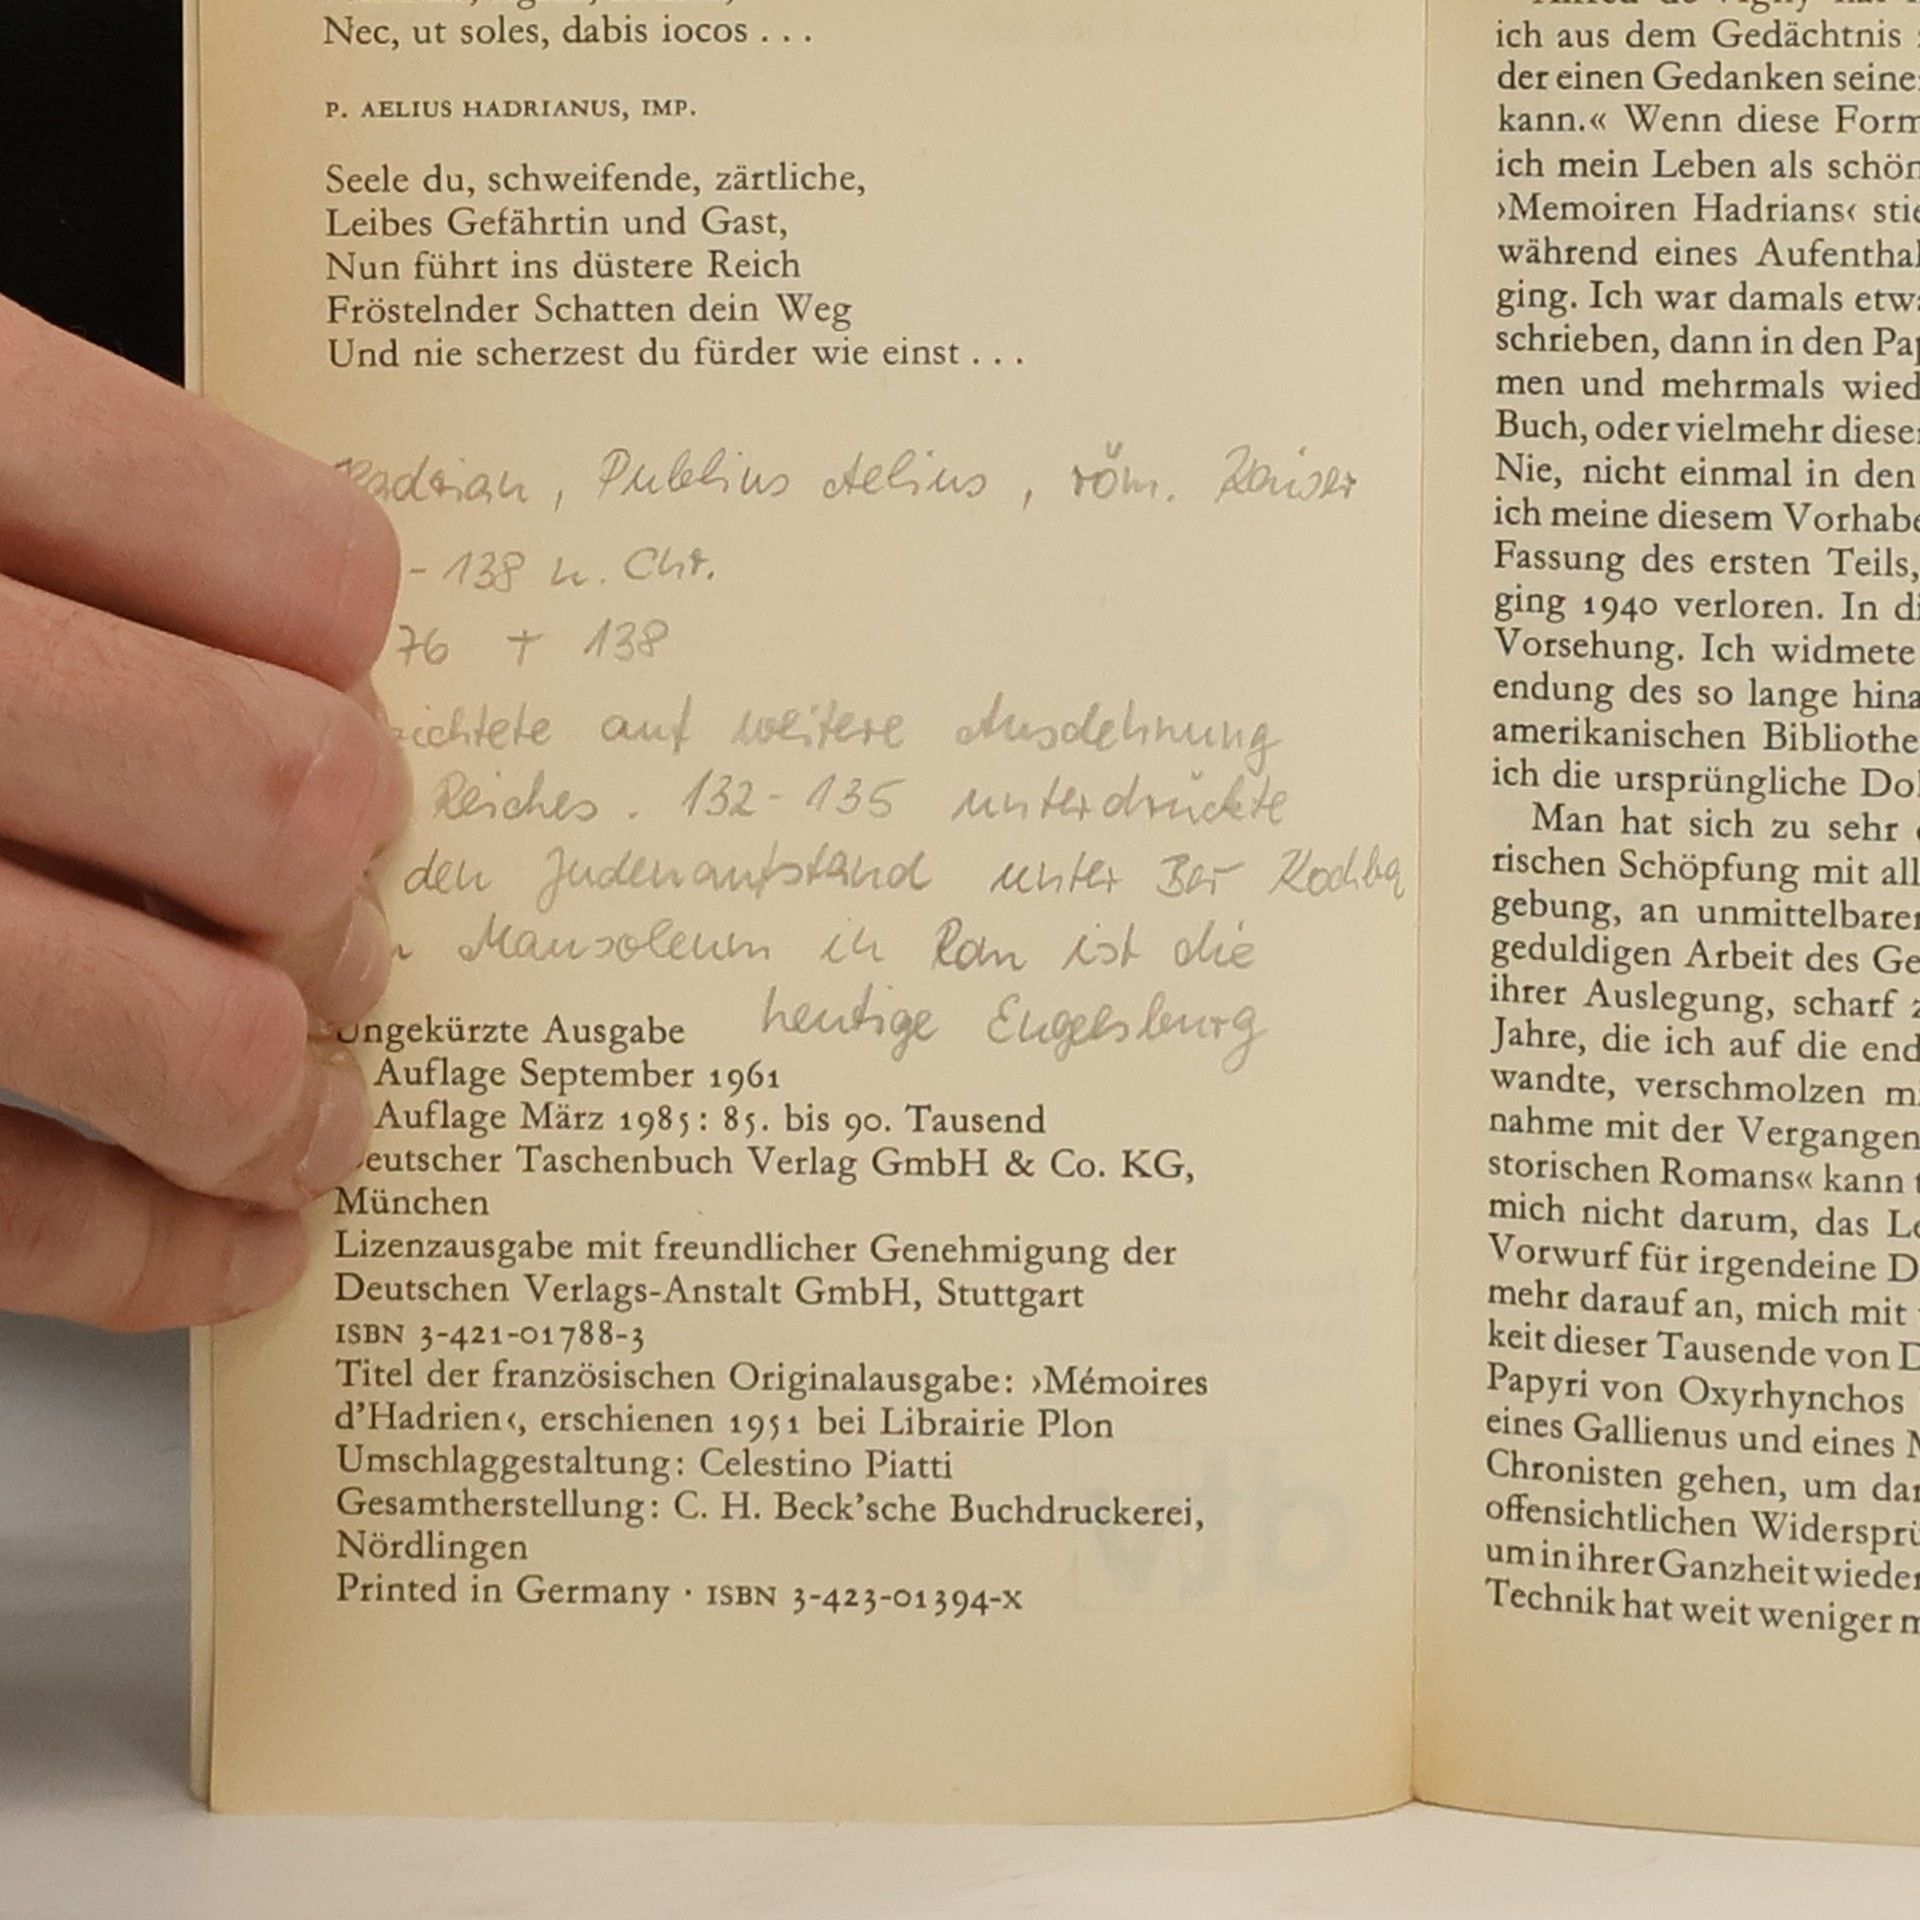 Nec, ut soles, dabis iocos . . .
P. AELIUS HADRIANUS, IMP.
Seele du, schweifende, zärtliche,
Leibes Gefährtin und Gast,
Nun führt ins düstere Reich
Fröstelnder Schatten dein Weg
Und nie scherzest du fürder wie einst . . .
Hadrian, Publius Aelius, röm. Kaiser
- 138 n. Chr.
76 + 138
auf weitere Ausdehnung
Reiches. 132-135 unterdrückte
den Judenaufstand unter Bar Kochba
Mausoleum in Rom ist die
heutige Engelsburg
Ungekürzte Ausgabe
Auflage September 1961
Auflage März 1985: 85. bis 90. Tausend
Deutscher Taschenbuch Verlag GmbH & Co. KG,
München
Lizenzausgabe mit freundlicher Genehmigung der
Deutschen Verlags-Anstalt GmbH, Stuttgart
ISBN 3-421-01788-3
Titel der französischen Originalausgabe: ›Mémoires
d'Hadrien‹, erschienen 1951 bei Librairie Plon
Umschlaggestaltung: Celestino Piatti
Gesamtherstellung: C. H. Beck'sche Buchdruckerei,
Nördlingen
Printed in Germany · ISBN 3-423-01394-X
ich aus dem Gedächtnis
der einen Gedanken
kann.« Wenn diese
ich mein Leben als
›Memoiren Hadrians‹
während eines
ging. Ich war damals
schrieben, dann in den
men und mehrmals
Buch, oder vielmehr
Nie, nicht einmal in den
ich meine diesem
Fassung des ersten Teils,
ging 1940 verloren. In
Vorsehung. Ich widmete
endung des so lange
amerikanischen
ich die ursprüngliche
Man hat sich zu sehr
rischen Schöpfung mit
gebung, an
geduldigen Arbeit des
ihrer Auslegung, scharf
Jahre, die ich auf die
wandte, verschmolzen
nahme mit der
storischen Romans« kann
mich nicht darum, das
Vorwurf für irgendeine
mehr darauf an, mich mit
keit dieser Tausende von
Papyri von Oxyrhynchos
eines Gallienus und eines
Chronisten gehen, um
offensichtlichen
um in ihrer Ganzheit
Technik hat weit weniger